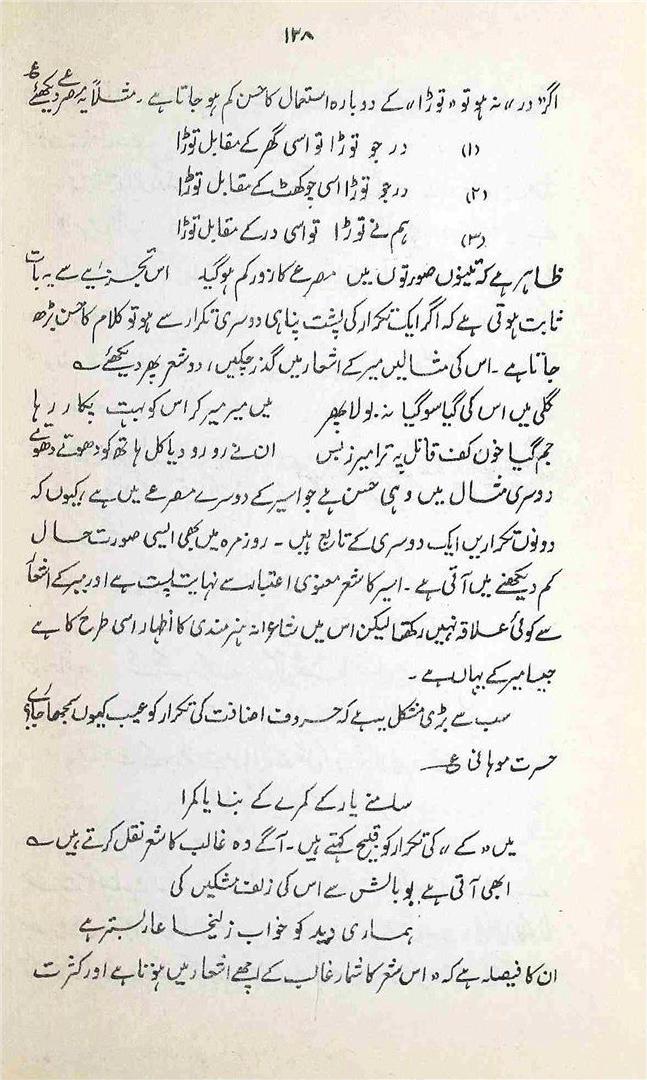 ۱۳۸
اگر "در" نہ ہو تو "توڑا" کے دوبارہ استعمال کا حسن کم ہو جاتا ہے۔ مثلاً یہ مصرعے دیکھئے ؏
(۱) در جو توڑا تو اسی گھر کے مقابل توڑا
(۲) در جو توڑا اسی چوکھٹ کے مقابل توڑا
(۳) ہم نے توڑا تو اسی در کے مقابل توڑا
ظاہر ہے کہ تینوں صورتوں میں مصرعے کا زور کم ہو گیا۔ اس تجزیے سے یہ بات
ثابت ہوتی ہے کہ اگر ایک تکرار کی پشت پناہی دوسری تکرار سے ہو تو کلام کا حسن بڑھ
جاتا ہے۔ اس کی مثالیں میر کے اشعار میں گذر چکیں، دو شعر پھر دیکھئے ؎
گلی میں اس کی گیا سو گیا نہ بولا پھر میں میر میر کر اس کو بہت پکار رہا
جم گیا خوں کف قاتل پہ ترا میر زبس ان نے رو رو دیا کل ہاتھ کو دھوتے دھوتے
دوسری مثال میں وہی حسن ہے جو اسیر کے دوسرے مصرعے میں ہے، کیوں کہ
دونوں تکراریں ایک دوسری کے تابع ہیں۔ روزمرہ میں بھی ایسی صورت حال
کم دیکھنے میں آتی ہے۔ اسیر کا شعر معنوی اعتبار سے نہایت پست ہے اور میر کے اشعار
سے کوئی علاقہ نہیں رکھتا لیکن اس میں شاعرانہ ہنرمندی کا اظہار اسی طرح کا ہے
جیسا میر کے یہاں ہے۔
سب سے بڑی مشکل یہ ہے کہ حروف اضافت کی تکرار کو عیب کیوں سمجھا جائے؟
حسرت موہانی ؏
سامنے یار کے کمرے کے بنایا کمرا
میں "کے" کی تکرار کو قبیح کہتے ہیں۔ آگے وہ غالب کا شعر نقل کرتے ہیں ؎
ابھی آتی ہے بو بالش سے اس کی زلف مشکیں کی
ہماری دید کو خواب زلیخا عار بستر ہے
ان کا فیصلہ ہے کہ "اس شعر کا شمار غالب کے اچھے اشعار میں ہوتا ہے اور کثرت